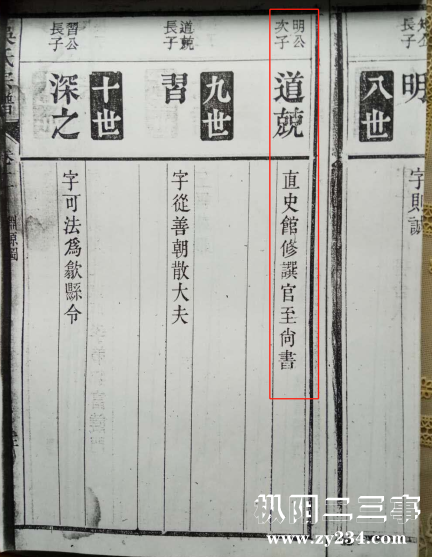 公
長子
明
八世
字則誠
明公
次子
道兢
直史館修譔官至尚書
九世
道兢
長子
習
字從善朝散大夫
十世
習公
長子
深之
字可法爲歙縣令
氏宗譜
淵源圖
枞阳二三事
www.zy234.com